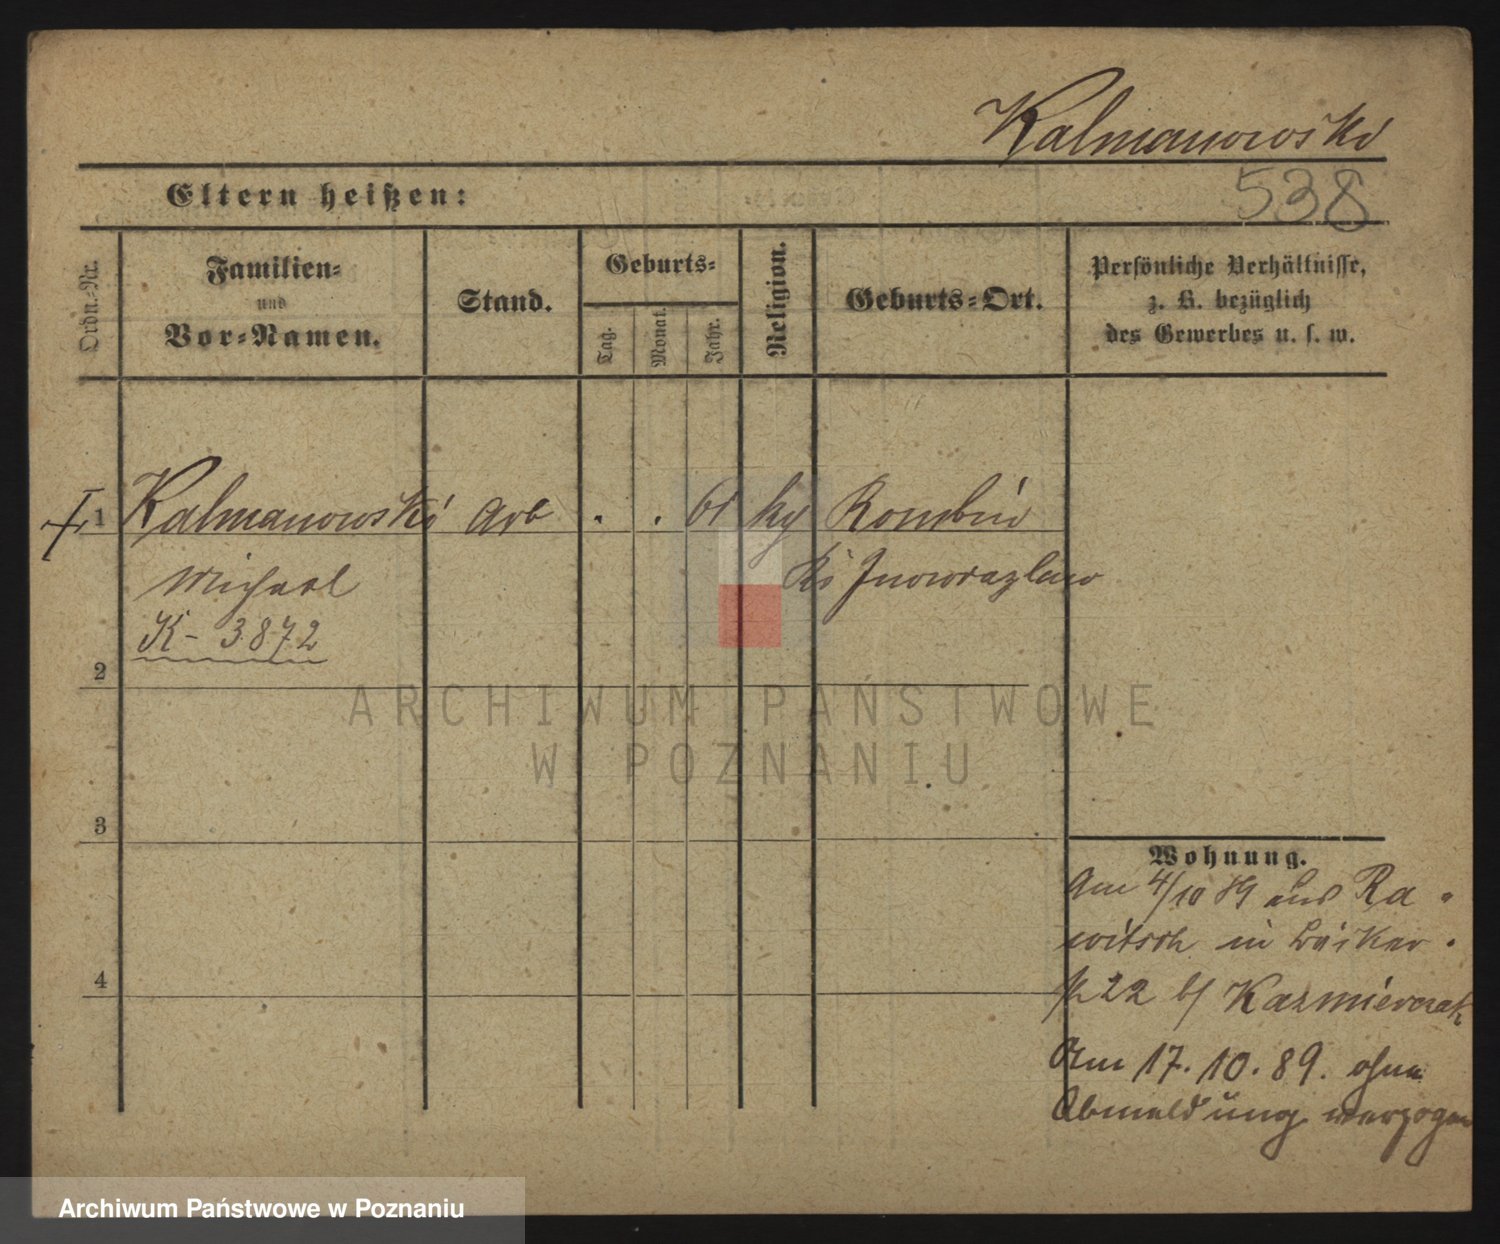 Kalmanowski
Eltern heißen:
538
Ordn.-Nr.
Familien-
und
Vor-Namen.
Stand.
Geburts-
Tag.
Monat.
Jahr.
Religion.
Geburts-Ort.
Persönliche Verhältnisse,
z. B. bezüglich
des Gewerbes u. s. w.
1 Kalmanowski Arb . . 61 Rombin
Michael Ks Inowrazlaw
K- 3872
2
ARCHIWUM PAŃSTWOWE
W POZNANIU
3
4
Wohnung.
Am 4/10 89 aus Ra-
witsch in Bäcker-
22 b/ Kazmierczak
Am 17.10.89. ohne
Abmeldung verzogen
Archiwum Państwowe w Poznaniu